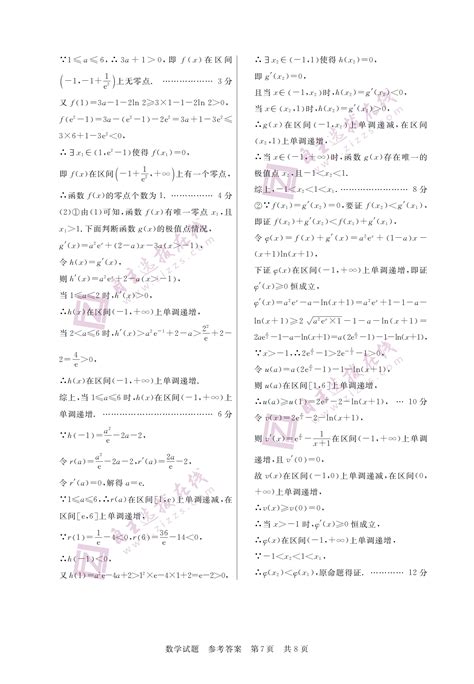 ∵1≤a≤6,∴3a+1>0,即 f(x)在区间
(-1,-1+1/e²)上无零点. ……………… 3分
又f(1)=3a-1-2ln 2≥3×1-1-2ln 2>0,
f(e²-1)=3a-(e²-1)-2e²=3a+1-3e²≤
3×6+1-3e²<0,
∴∃x₁∈(1,e²-1)使得f(x₁)=0,
即f(x)在区间(-1+1/e²,+∞)上有一个零点,
∴函数f(x)的零点个数为1. …………… 4分
(2)①由(1)可知,函数f(x)有唯一零点x₁,且
x₁>1.下面判断函数g(x)的极值点情况,
g′(x)=a²eˣ+(2-a)x-3a(x>-1),
令h(x)=g′(x),
则h′(x)=a²eˣ+2-a(x>-1),
当1≤a≤2时,h′(x)>0,
∴h(x)在区间(-1,+∞)上单调递增.
2=4/e>0,
∴h(x)在区间(-1,+∞)上单调递增.
综上,当1≤a≤6时,h(x)在区间(-1,+∞)上
单调递增. ……………………………… 6分
∵h(-1)=a²/e-2a-2,
令r(a)=a²/e-2a-2,r′(a)=2a/e-2,
令r′(a)=0,解得a=e.
∵1≤a≤6,∴r(a)在区间[1,e)上单调递减,在
区间[e,6]上单调递增,
∵r(1)=1/e-4<0,r(6)=36/e-14<0,
∴h(-1)<0,
又h(1)=a²e-4a+2>1²×e-4×1+2=e-2>0,
∴∃x₂∈(-1,1)使得h(x₂)=0,
即g′(x₂)=0,
且当x∈(-1,x₂)时,h(x)=g′(x)<0,
当x∈(x₂,1)时,h(x)=g′(x)>0,
∴g(x)在区间(-1,x₂)上单调递减,在区间
(x₂,1)上单调递增,
∴当x∈(-1,+∞)时,函数g(x)存在唯一的
极值点x₂,且-1<x₂<1.
综上,-1<x₂<1<x₁. …………………… 8分
②∵f(x₁)=g′(x₂)=0,要证f(x₂)<g′(x₁),
即证f(x₂)+g′(x₂)<f(x₁)+g′(x₁),
令φ(x)=f(x)+g′(x)=a²eˣ+(1-a)x-
(x+1)ln(x+1),
下证φ(x)在区间(-1,+∞)上单调递增,即证
φ′(x)≥0恒成立,
φ′(x)=a²eˣ-a-ln(x+1)=a²eˣ+1-1-a-
令u(a)=a(2e^(x/2)-1)-1-ln(x+1),
则u(a)在区间[1,6]上单调递增,
∴u(a)≥u(1)=2e^(x/2)-2-ln(x+1), … 10分
令v(x)=2e^(x/2)-2-ln(x+1),
则v′(x)=e^(x/2)-1/(x+1)在区间(-1,+∞)上单调
递增,且v′(0)=0,
故v(x)在区间(-1,0)上单调递减,在区间(0,
+∞)上单调递增,
∴v(x)≥v(0)=0,
∴当x>-1时,φ′(x)≥0恒成立,
∴φ(x)在区间(-1,+∞)上单调递增,
∵-1<x₂<1<x₁,
∴φ(x₂)<φ(x₁),原命题得证. ………… 12分
数学试题 参考答案 第7页 共8页